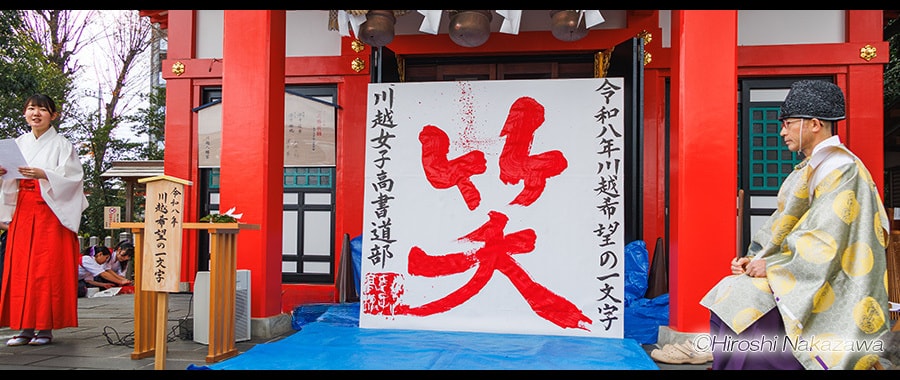 令和八年川越希望の一文字
笑
川越女子高書道部
令和八年
川越希望の一文字
©Hiroshi Nakazawa